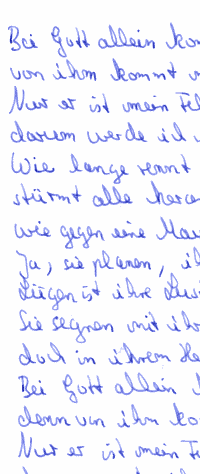 Bei Gott allein
von ihm kommt
Nur er ist mein
darum werde ich
Wie lange rennt
stürmt alle
wie gegen eine
Ja, sie planen,
Lügen ist ihre
Sie segnen mit
doch in ihrem
Bei Gott allein
denn von ihm
Nur er ist mein